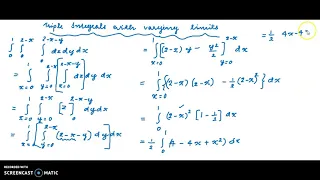 Triple Integrals with varying limits
∫₀¹ ∫₀^{2-x} ∫₀^{2-x-y} dz dy dx
= ∫_{x=0}^{1} ∫_{y=0}^{2-x} [∫_{z=0}^{2-x-y} dz] dy dx
= ∫_{x=0}^{1} ∫_{y=0}^{2-x} [z]_0^{2-x-y} dy dx
= ∫_{x=0}^{1} [∫_{y=0}^{2-x} (2-x-y) dy] dx
= ∫_{x=0}^{1} [(2-x) y - y²/2]_{y=0}^{2-x} dx
= ∫_{x=0}^{1} {(2-x)(2-x) - 1/2 (2-x)²} dx
= ∫₀¹ (2-x)² [1-1/2] dx
= 1/2 ∫₀¹ (4-4x+x²) dx
= 1/2 4x-4
RECORDED WITH
SCREENCAST MATIC